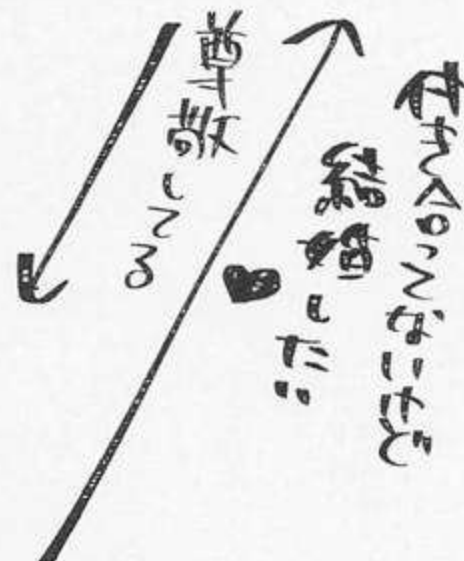 付き合ってないけど
結婚したい
尊敬してる